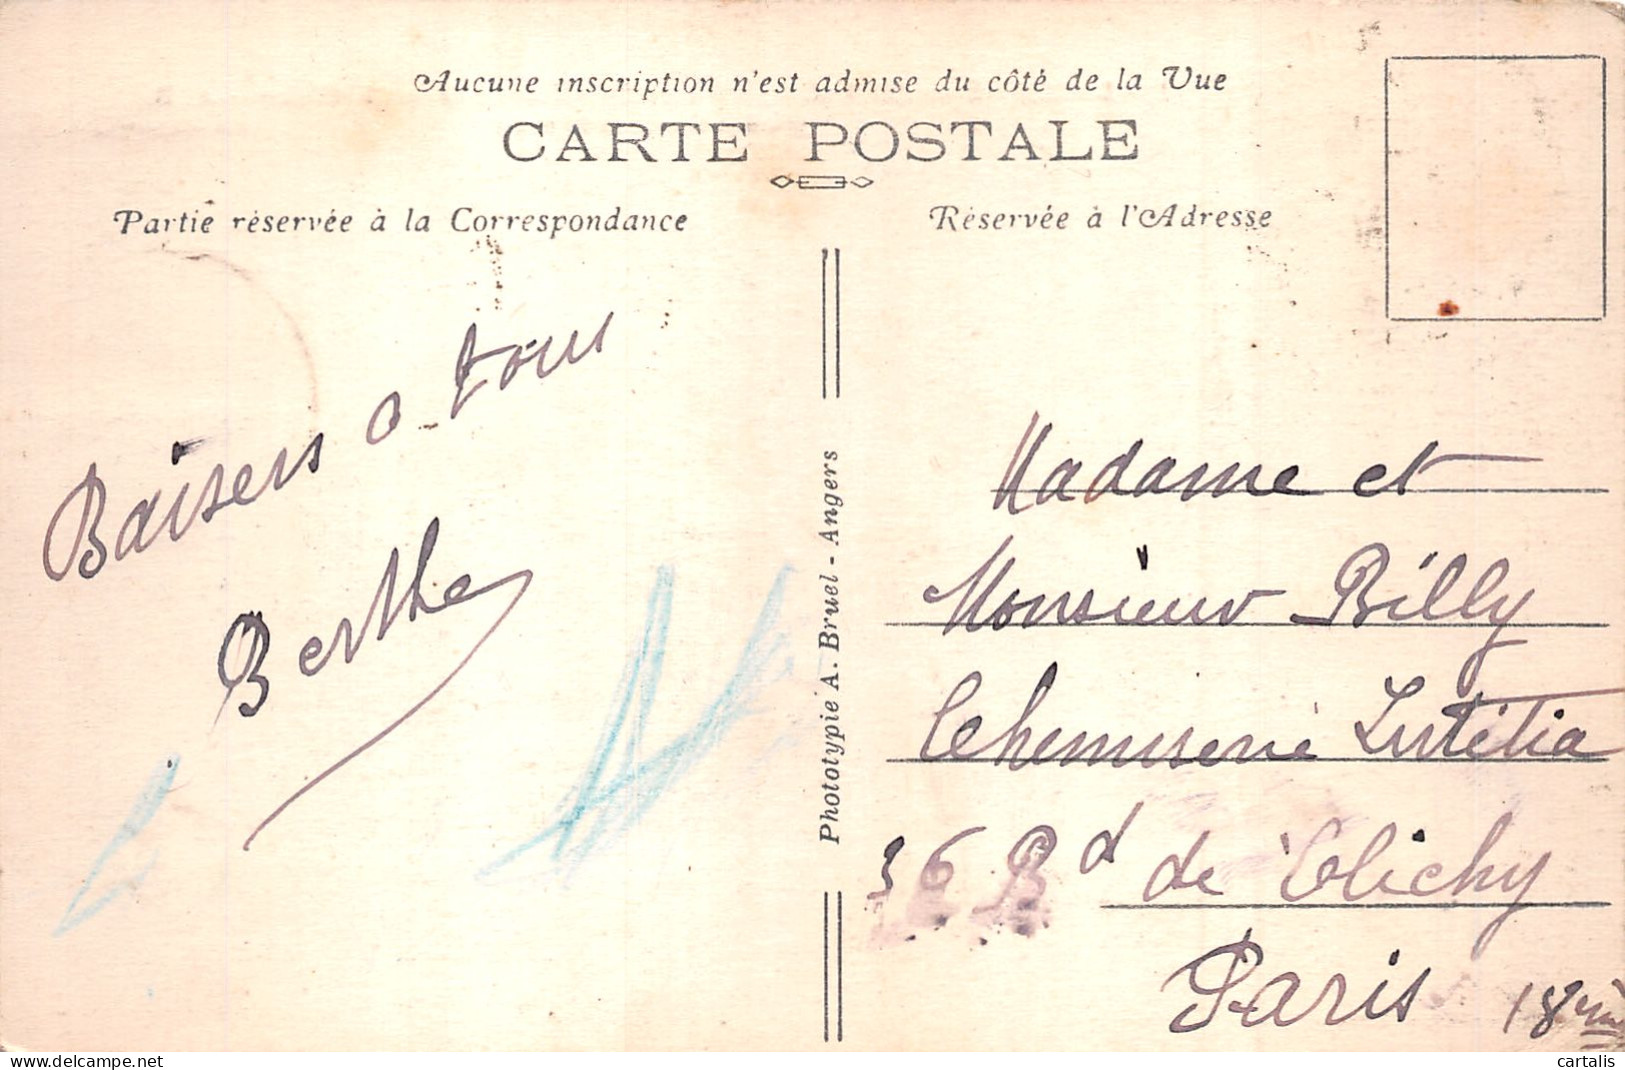 Aucune inscription n'est admise du côté de la Vue
CARTE POSTALE
Partie réservée à la Correspondance
Réservée à l'Adresse
Baisers a tous
Berthe
Phototypie A. Bruel - Angers
Madame et
Monsieur Billy
Chemiserie Lutetia
36 Bd de Clichy
Paris 18eme
cartalis